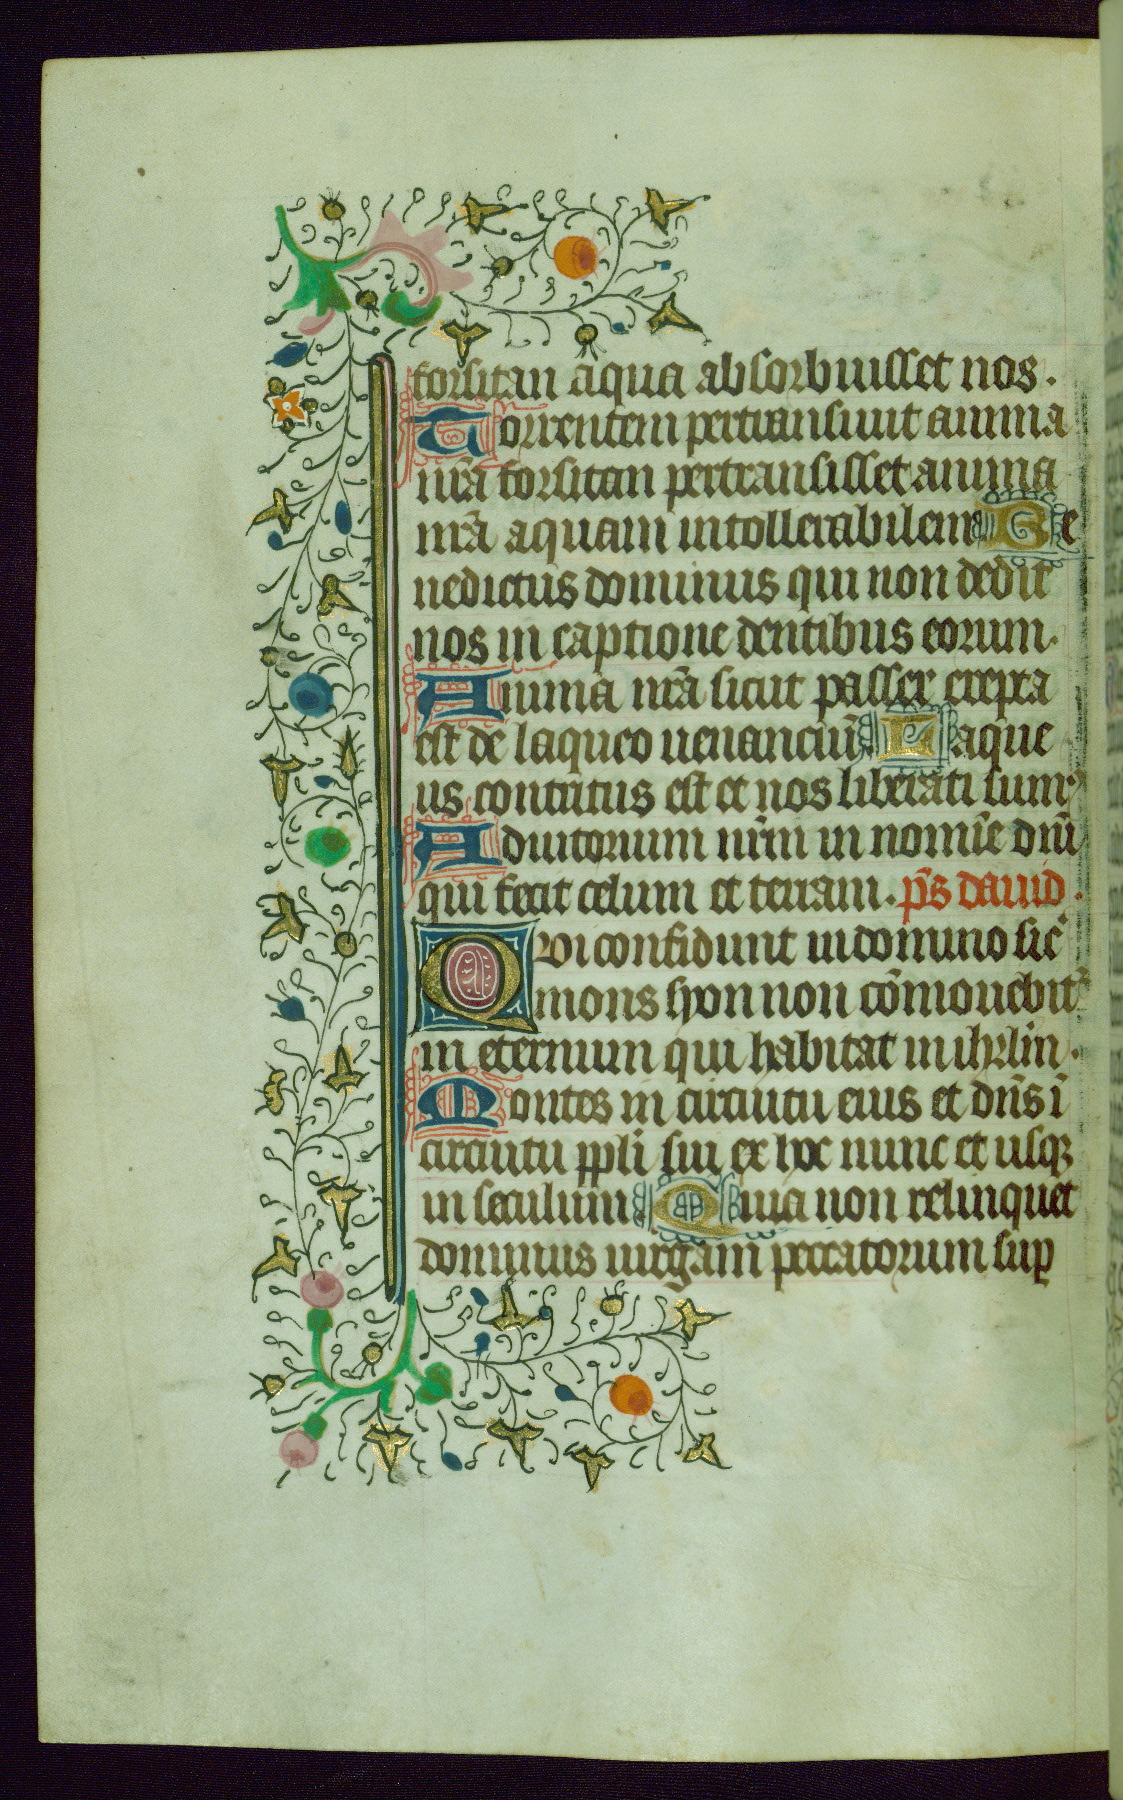 forsitan aqua absorbuisset nos.
Torrentem pertransiuit anima
nr̃a forsitan pertransisset anima
nr̃a aquam intollerabilem Be
nedictus dominus qui non dedit
nos in captione dentibus eorum.
Anima nr̃a sicut passer erepta
est de laqueo uenanciũ Laque
us contritus est et nos liberati sumꝰ
Adiutorium nr̃m in nomĩe dñi
qui fecit celum et terram. p̃s dauid.
Qui confidunt in domino sic̃
mons syon non cõmouebit᷑
in eternum qui habitat in ihrl̃m.
Montes in circuitu eius et dñs ĩ
circuitu ppl̃i sui ex hoc nunc et usqꝫ
in seculum Quia non relinquet
dominus uirgam peccatorum suꝑ